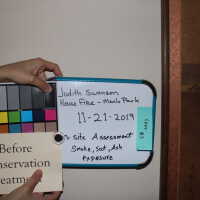 Judith Swanson
House Fire - Menlo Park
11-21-2019
Site Assessment
Smoke, Soot, Ash
Exposure
Before
Conservation
Treatment